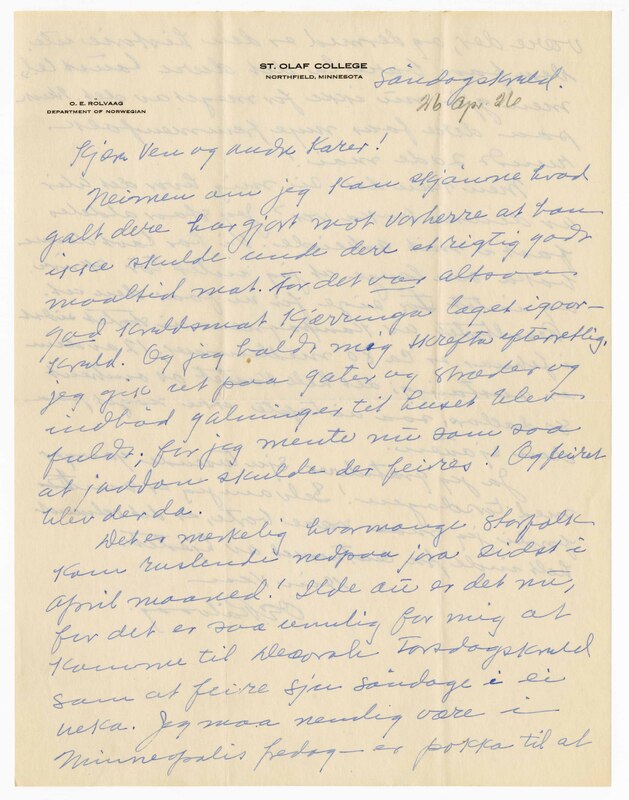 ST. OLAF COLLEGE
NORTHFIELD, MINNESOTA
O. E. ROLVAAG
DEPARTMENT OF NORWEGIAN
Söndagskveld.
26 apr. 26
Kjære Ven og andre Karer!
Neimen om jeg kan skjönne hvad
galt dere har gjort mot Vorherre at han
ikke skulde unde dere et rigtig godt
maaltid mat. For det var altsaa
god kveldsmat Kjærringa laget igaar-
kveld. Og jeg holdt mig skrifta efterrettlig,
jeg gik ut paa gater og stræder og
indböd galninger til huset blev
fuldt; for jeg mente nu som saa
at jaddan skulde der feires! Og feiret
blev der da.
Det er merkelig hvormange storfolk
kom ruslende nedpaa jora sidst i
April maaned! Ilde au er det nu,
for det er saa umulig for mig at
komme til Decorah Torsdagskveld
som at feire sju söndage i ei
veka. Jeg maa nemlig være i
Minneapolis fredag – er pokka til at